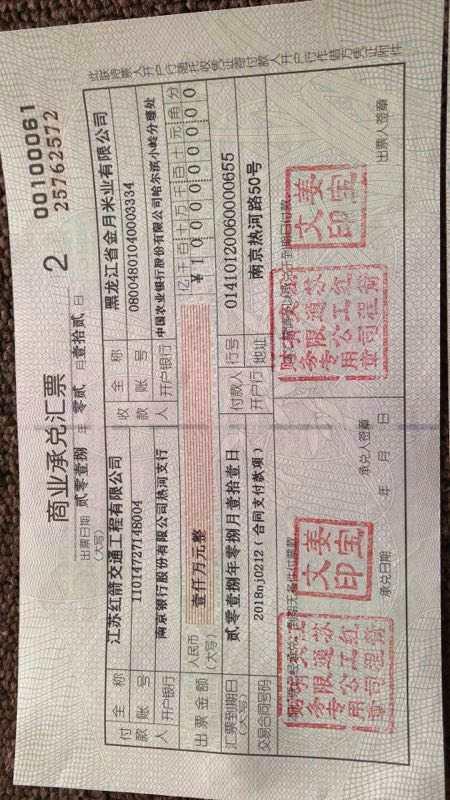 商业承兑汇票 2
00100061
25762572
出票日期 贰零壹捌 年 零贰 月 壹拾贰 日
(大写)
付款人 全称 江苏红箭交通工程有限公司 收款人 全称 黑龙江省金月米业有限公司
账号 11014727148004 账号 08004801040003334
开户银行 南京银行股份有限公司热河支行 开户银行 中国农业银行股份有限公司哈尔滨小岭分理处
出票金额 人民币 (大写) 壹仟万元整 亿千百十万千百十元角分
¥1000000000
汇票到期日 (大写) 贰零壹捌年零捌月壹拾壹日 付款人开户行 行号 014101200600000655
交易合同号码 2018nj0212(合同支付款项) 地址 南京热河路50号
姜宝文印
江苏红箭交通工程有限公司财务专用章
姜宝文印
江苏红箭交通工程有限公司财务专用章
承兑人签章
承兑日期 年 月 日
出票人签章
此联持票人开户行随托收凭证寄付款人开户行作借方凭证附件